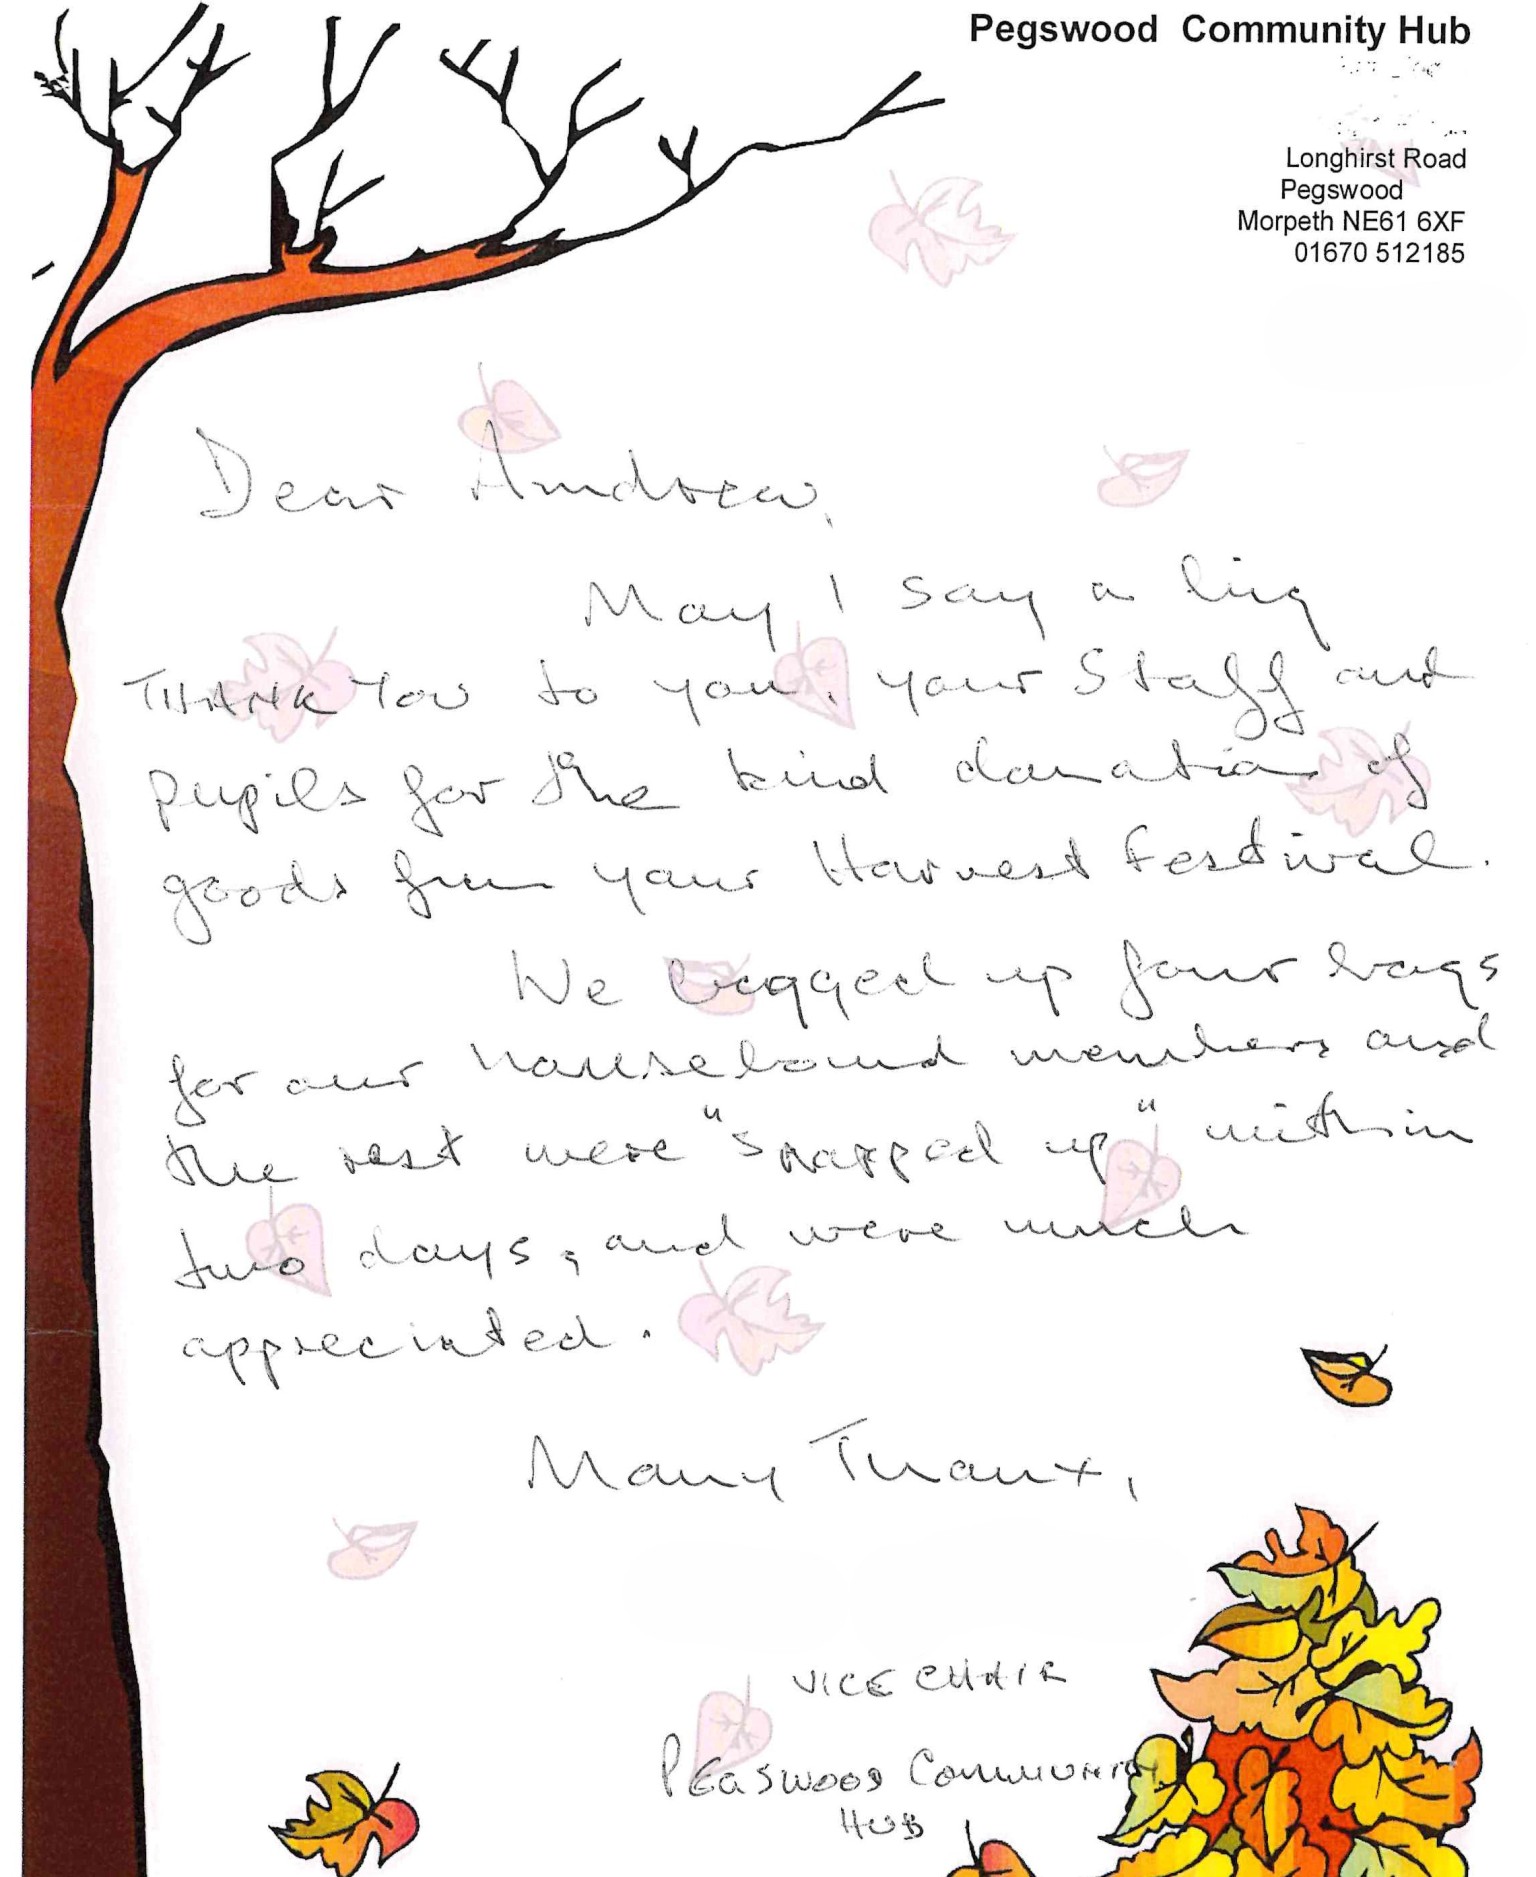 Pegswood Community Hub
Longhirst Road
Pegswood
Morpeth NE61 6XF
01670 512185
Dear Andrew,
May I say a big
THANK YOU to you, your Staff and
pupils for the kind donation of
goods from your Harvest Festival.
We bagged up four bags
for our housebound members and
the rest were "snapped up" within
two days, and were much
appreciated.
Many Thanx,
VICE CHAIR
PEGSWOOD COMMUNITY
HUB